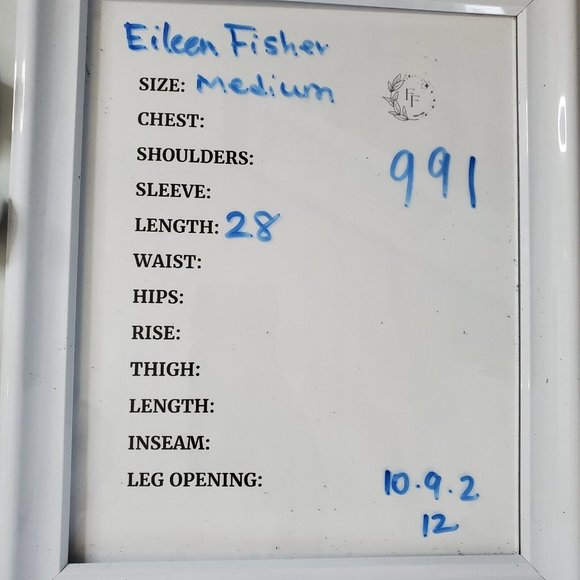 Eileen Fisher
SIZE: Medium
FF
CHEST:
SHOULDERS:
991
SLEEVE:
LENGTH: 28
WAIST:
HIPS:
RISE:
THIGH:
LENGTH:
INSEAM:
LEG OPENING:
10.9.2
12